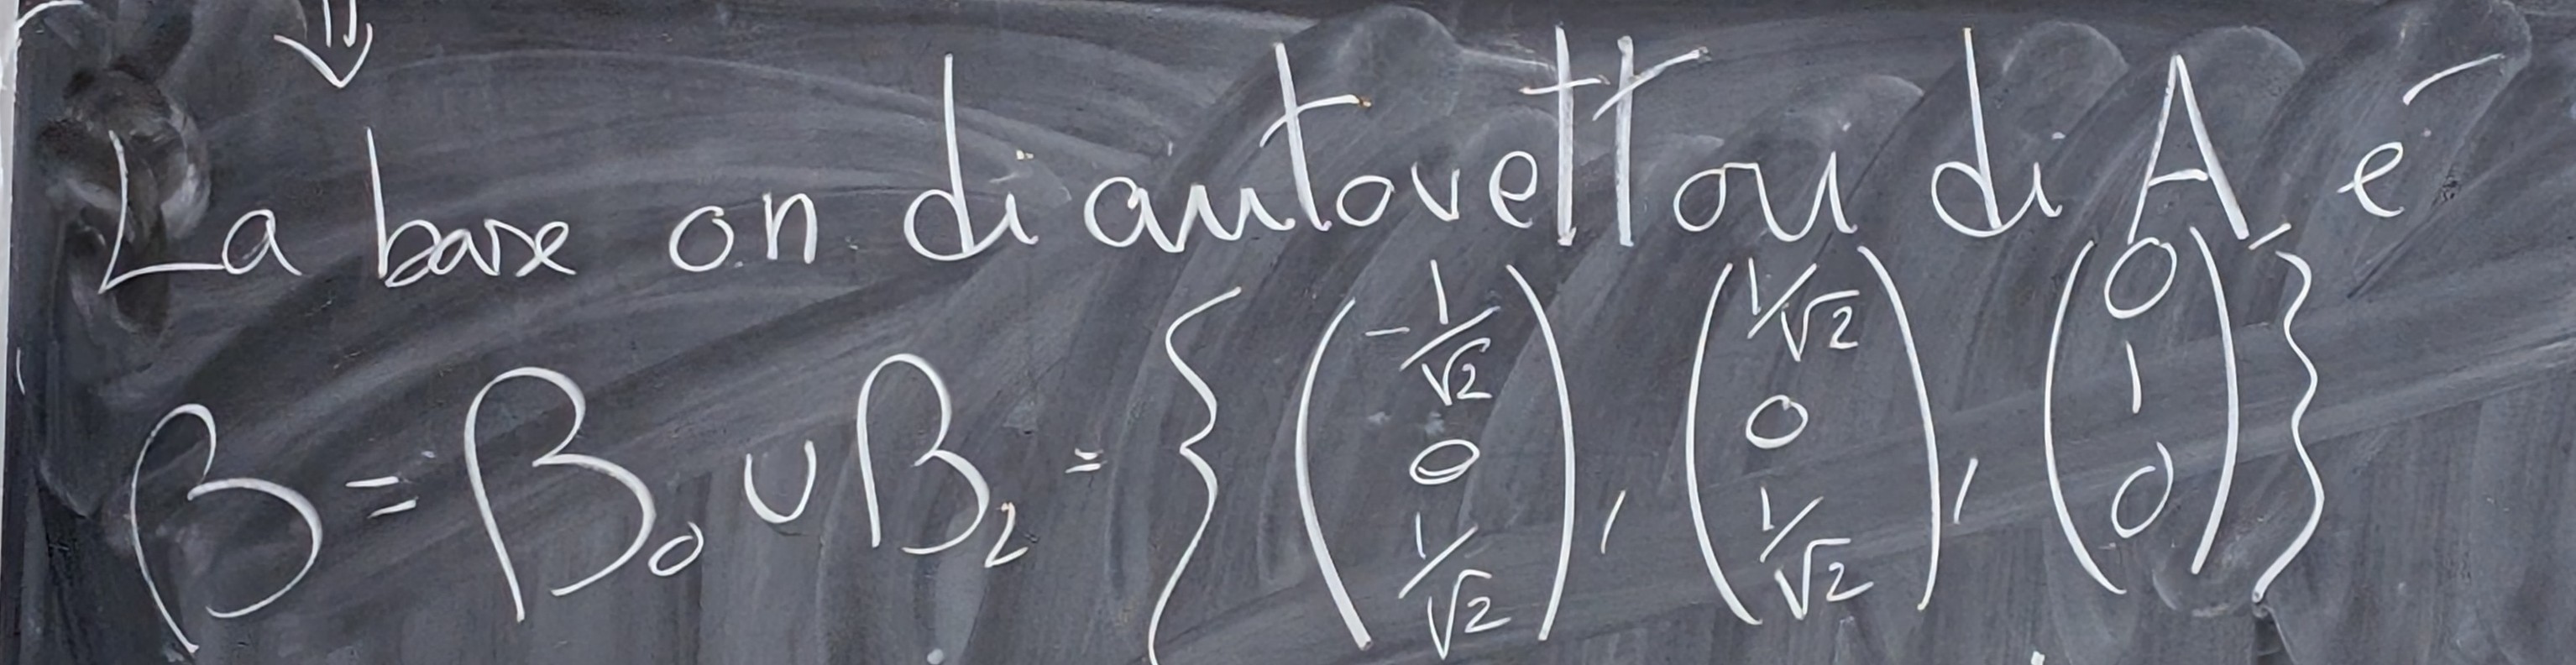 ⇓
La base o.n di autovettori di A è
β = β₀ ∪ β₂ = { (-1/√2, 0, 1/√2), (1/√2, 0, 1/√2), (0, 1, 0) }